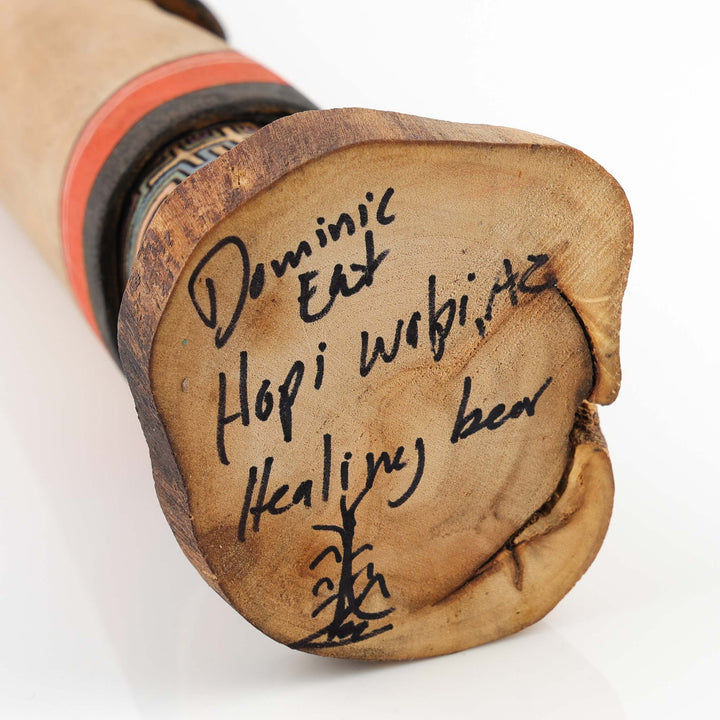 Dominic
Eat
Hopi Wapi, AZ
Healing bear